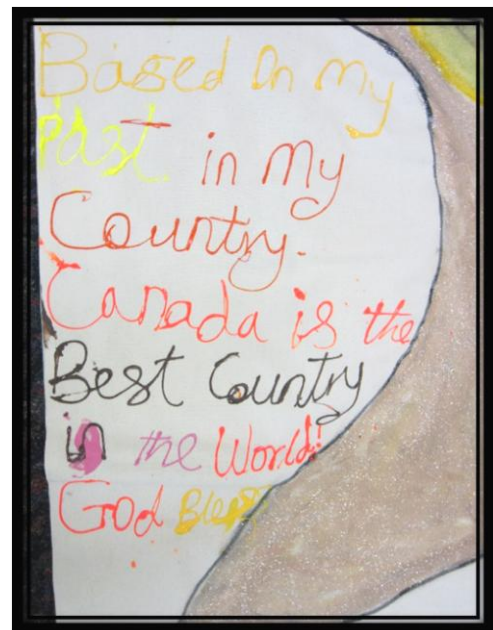 Based On my
Past in My
Country.
Canada is the
Best Country
in the World!
God Bless